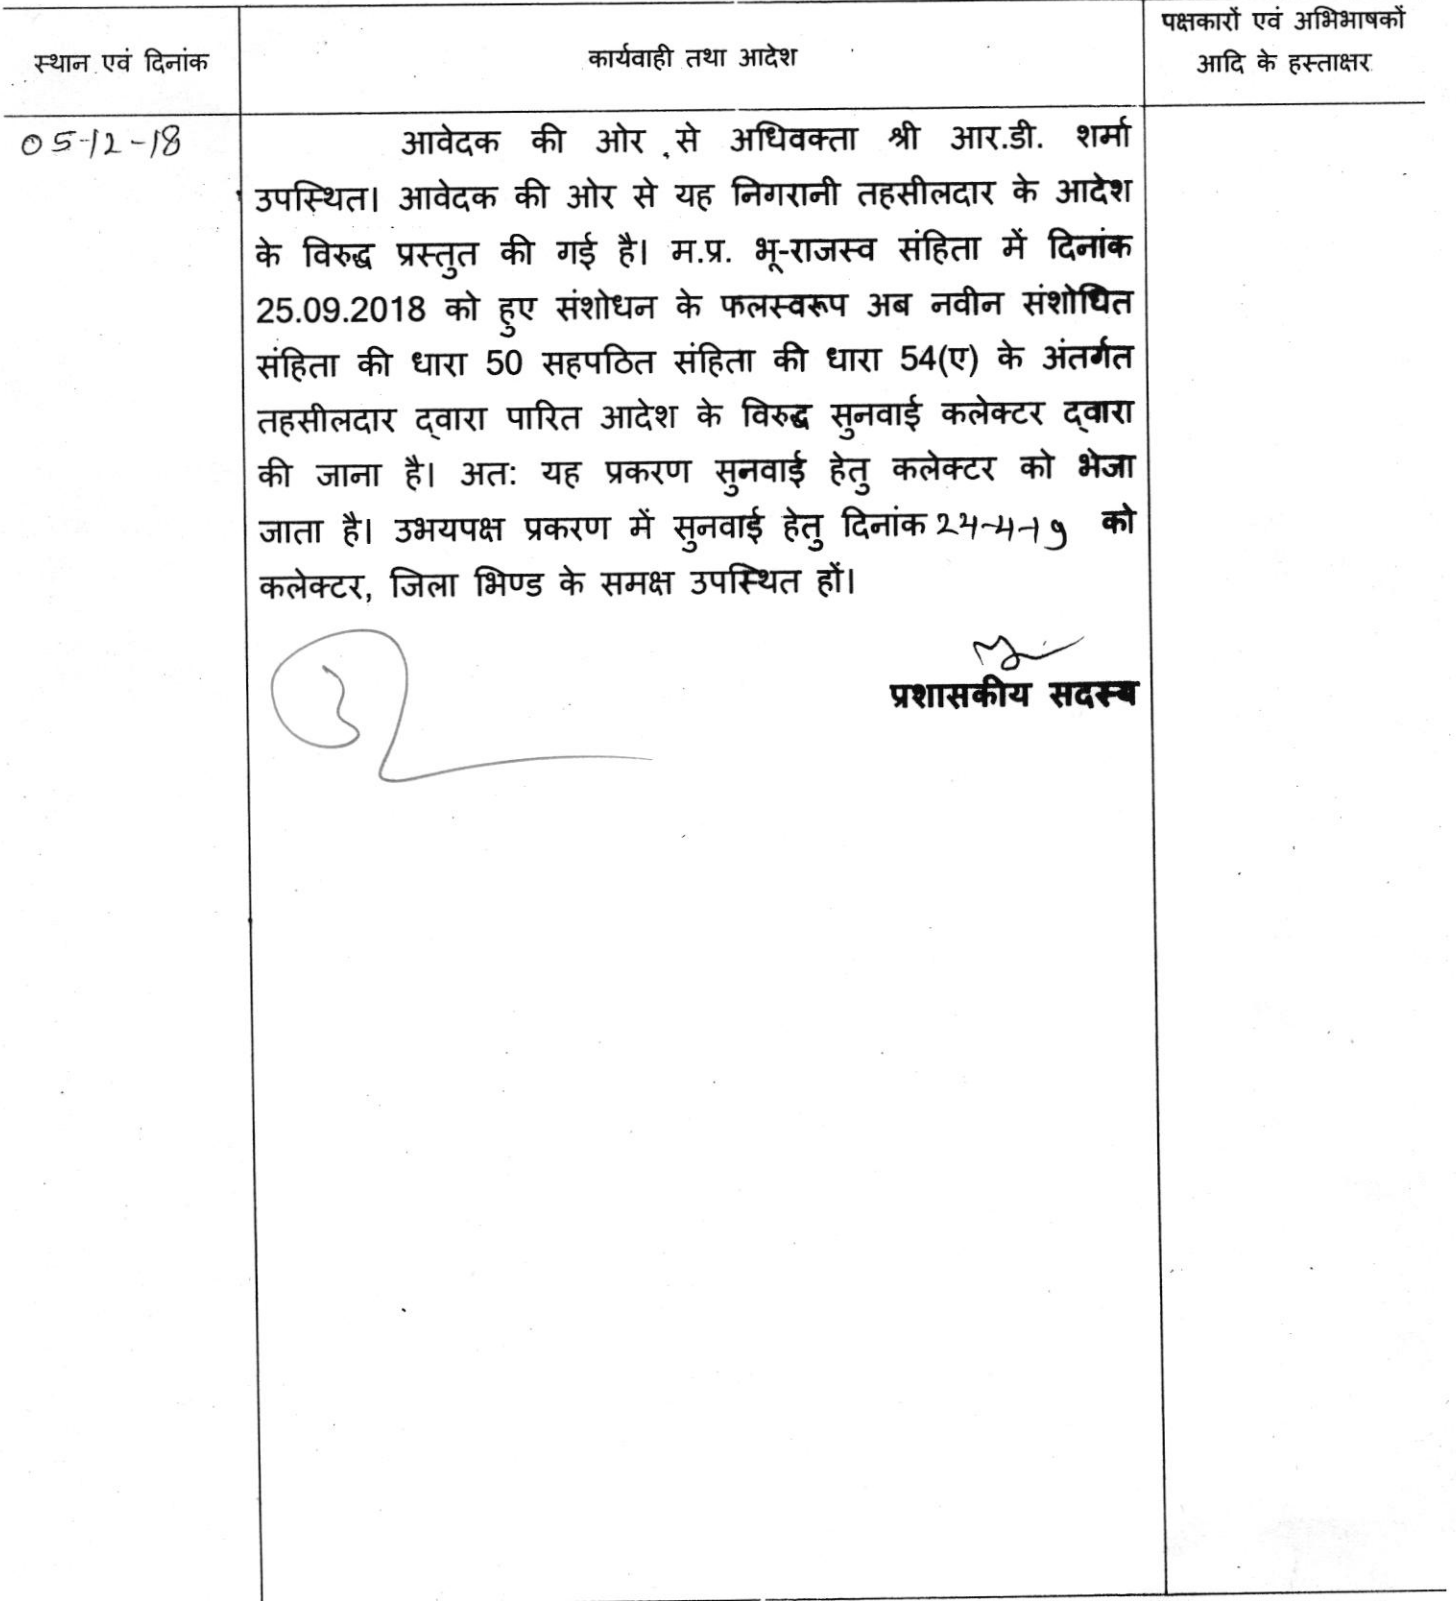 स्थान एवं दिनांक
कार्यवाही तथा आदेश
पक्षकारों एवं अभिभाषकों
आदि के हस्ताक्षर
05-12-18
आवेदक की ओर से अधिवक्ता श्री आर.डी. शर्मा
उपस्थित। आवेदक की ओर से यह निगरानी तहसीलदार के आदेश
के विरुद्ध प्रस्तुत की गई है। म.प्र. भू-राजस्व संहिता में दिनांक
25.09.2018 को हुए संशोधन के फलस्वरूप अब नवीन संशोधित
संहिता की धारा 50 सहपठित संहिता की धारा 54(ए) के अंतर्गत
तहसीलदार द्वारा पारित आदेश के विरुद्ध सुनवाई कलेक्टर द्वारा
की जाना है। अत: यह प्रकरण सुनवाई हेतु कलेक्टर को भेजा
जाता है। उभयपक्ष प्रकरण में सुनवाई हेतु दिनांक 24-4-19 को
कलेक्टर, जिला भिण्ड के समक्ष उपस्थित हों।
प्रशासकीय सदस्य